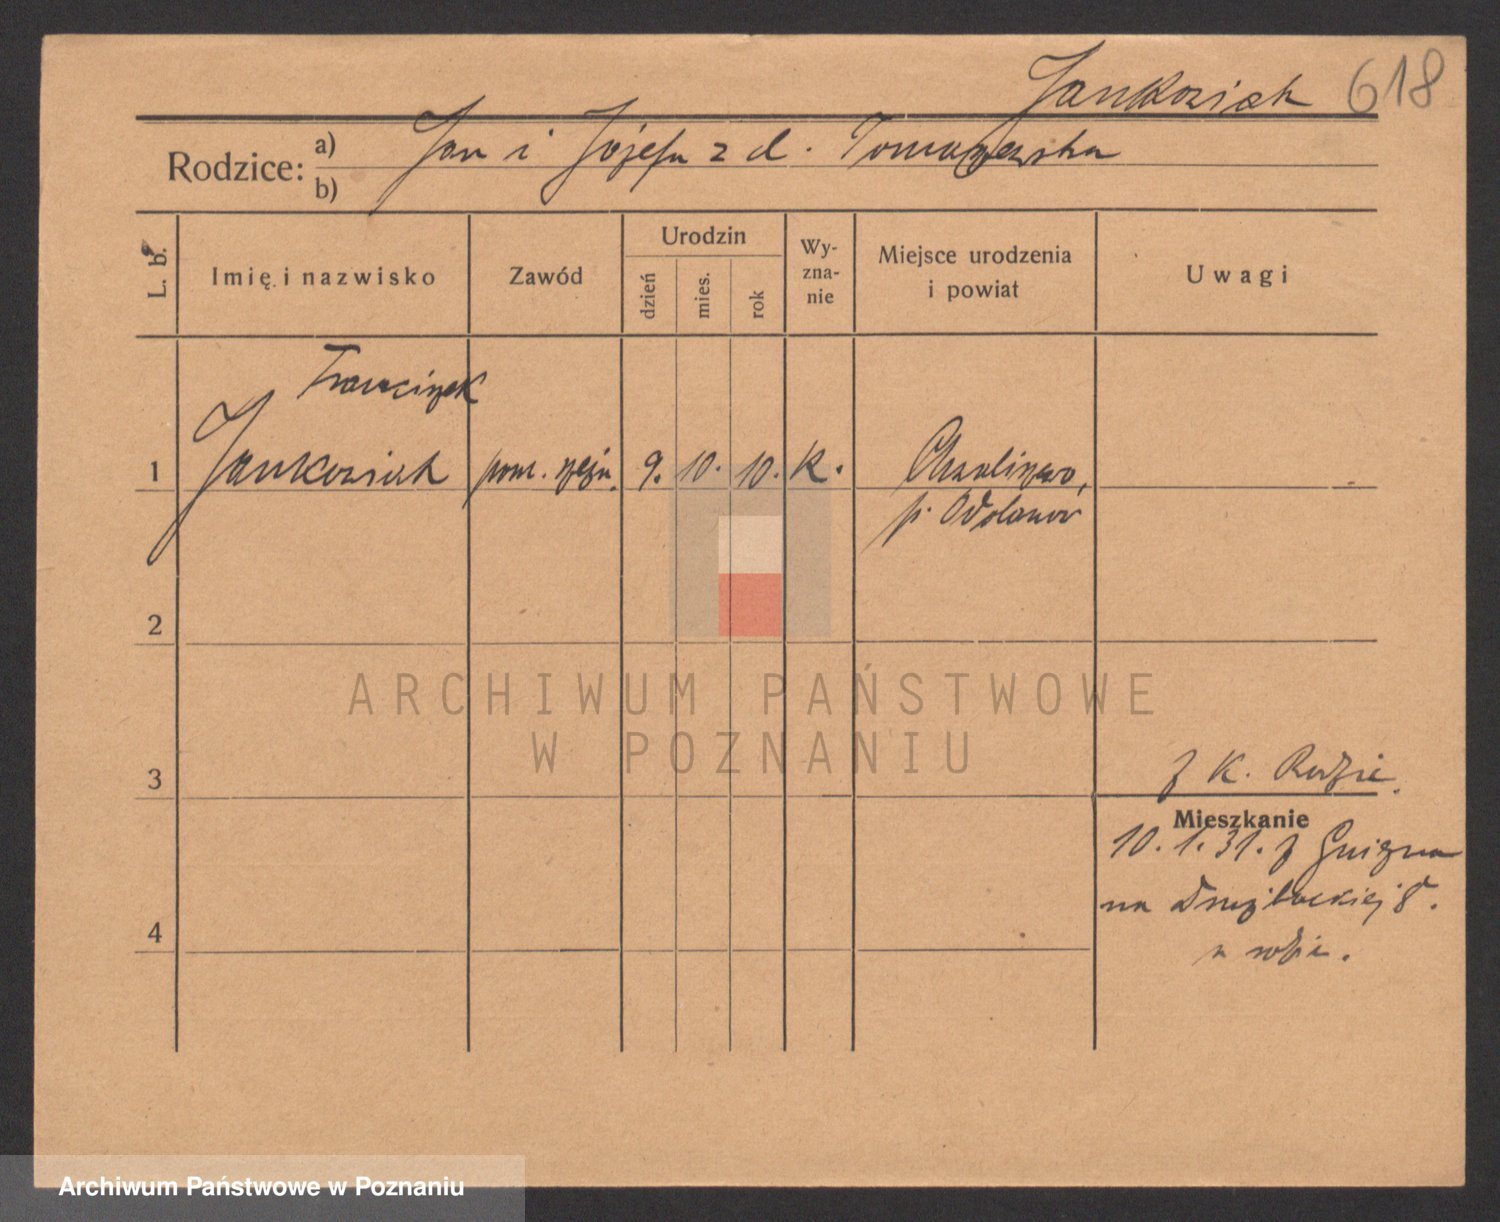 Jankowiak 618
Rodzice: a) Jan i Józefa z d. Tomaszewska
b)
L. b. Imię i nazwisko Zawód Urodzin dzień mies. rok Wyznanie Miejsce urodzenia i powiat Uwagi
Franciszek
1 Jankowiak pom. rzeźn. 9. 10. 10. k.
p. Odolanów
2
ARCHIWUM PAŃSTWOWE
W POZNANIU
3 z K.
Mieszkanie
10.1.31. z Gniezna
na 8.
4
Archiwum Państwowe w Poznaniu